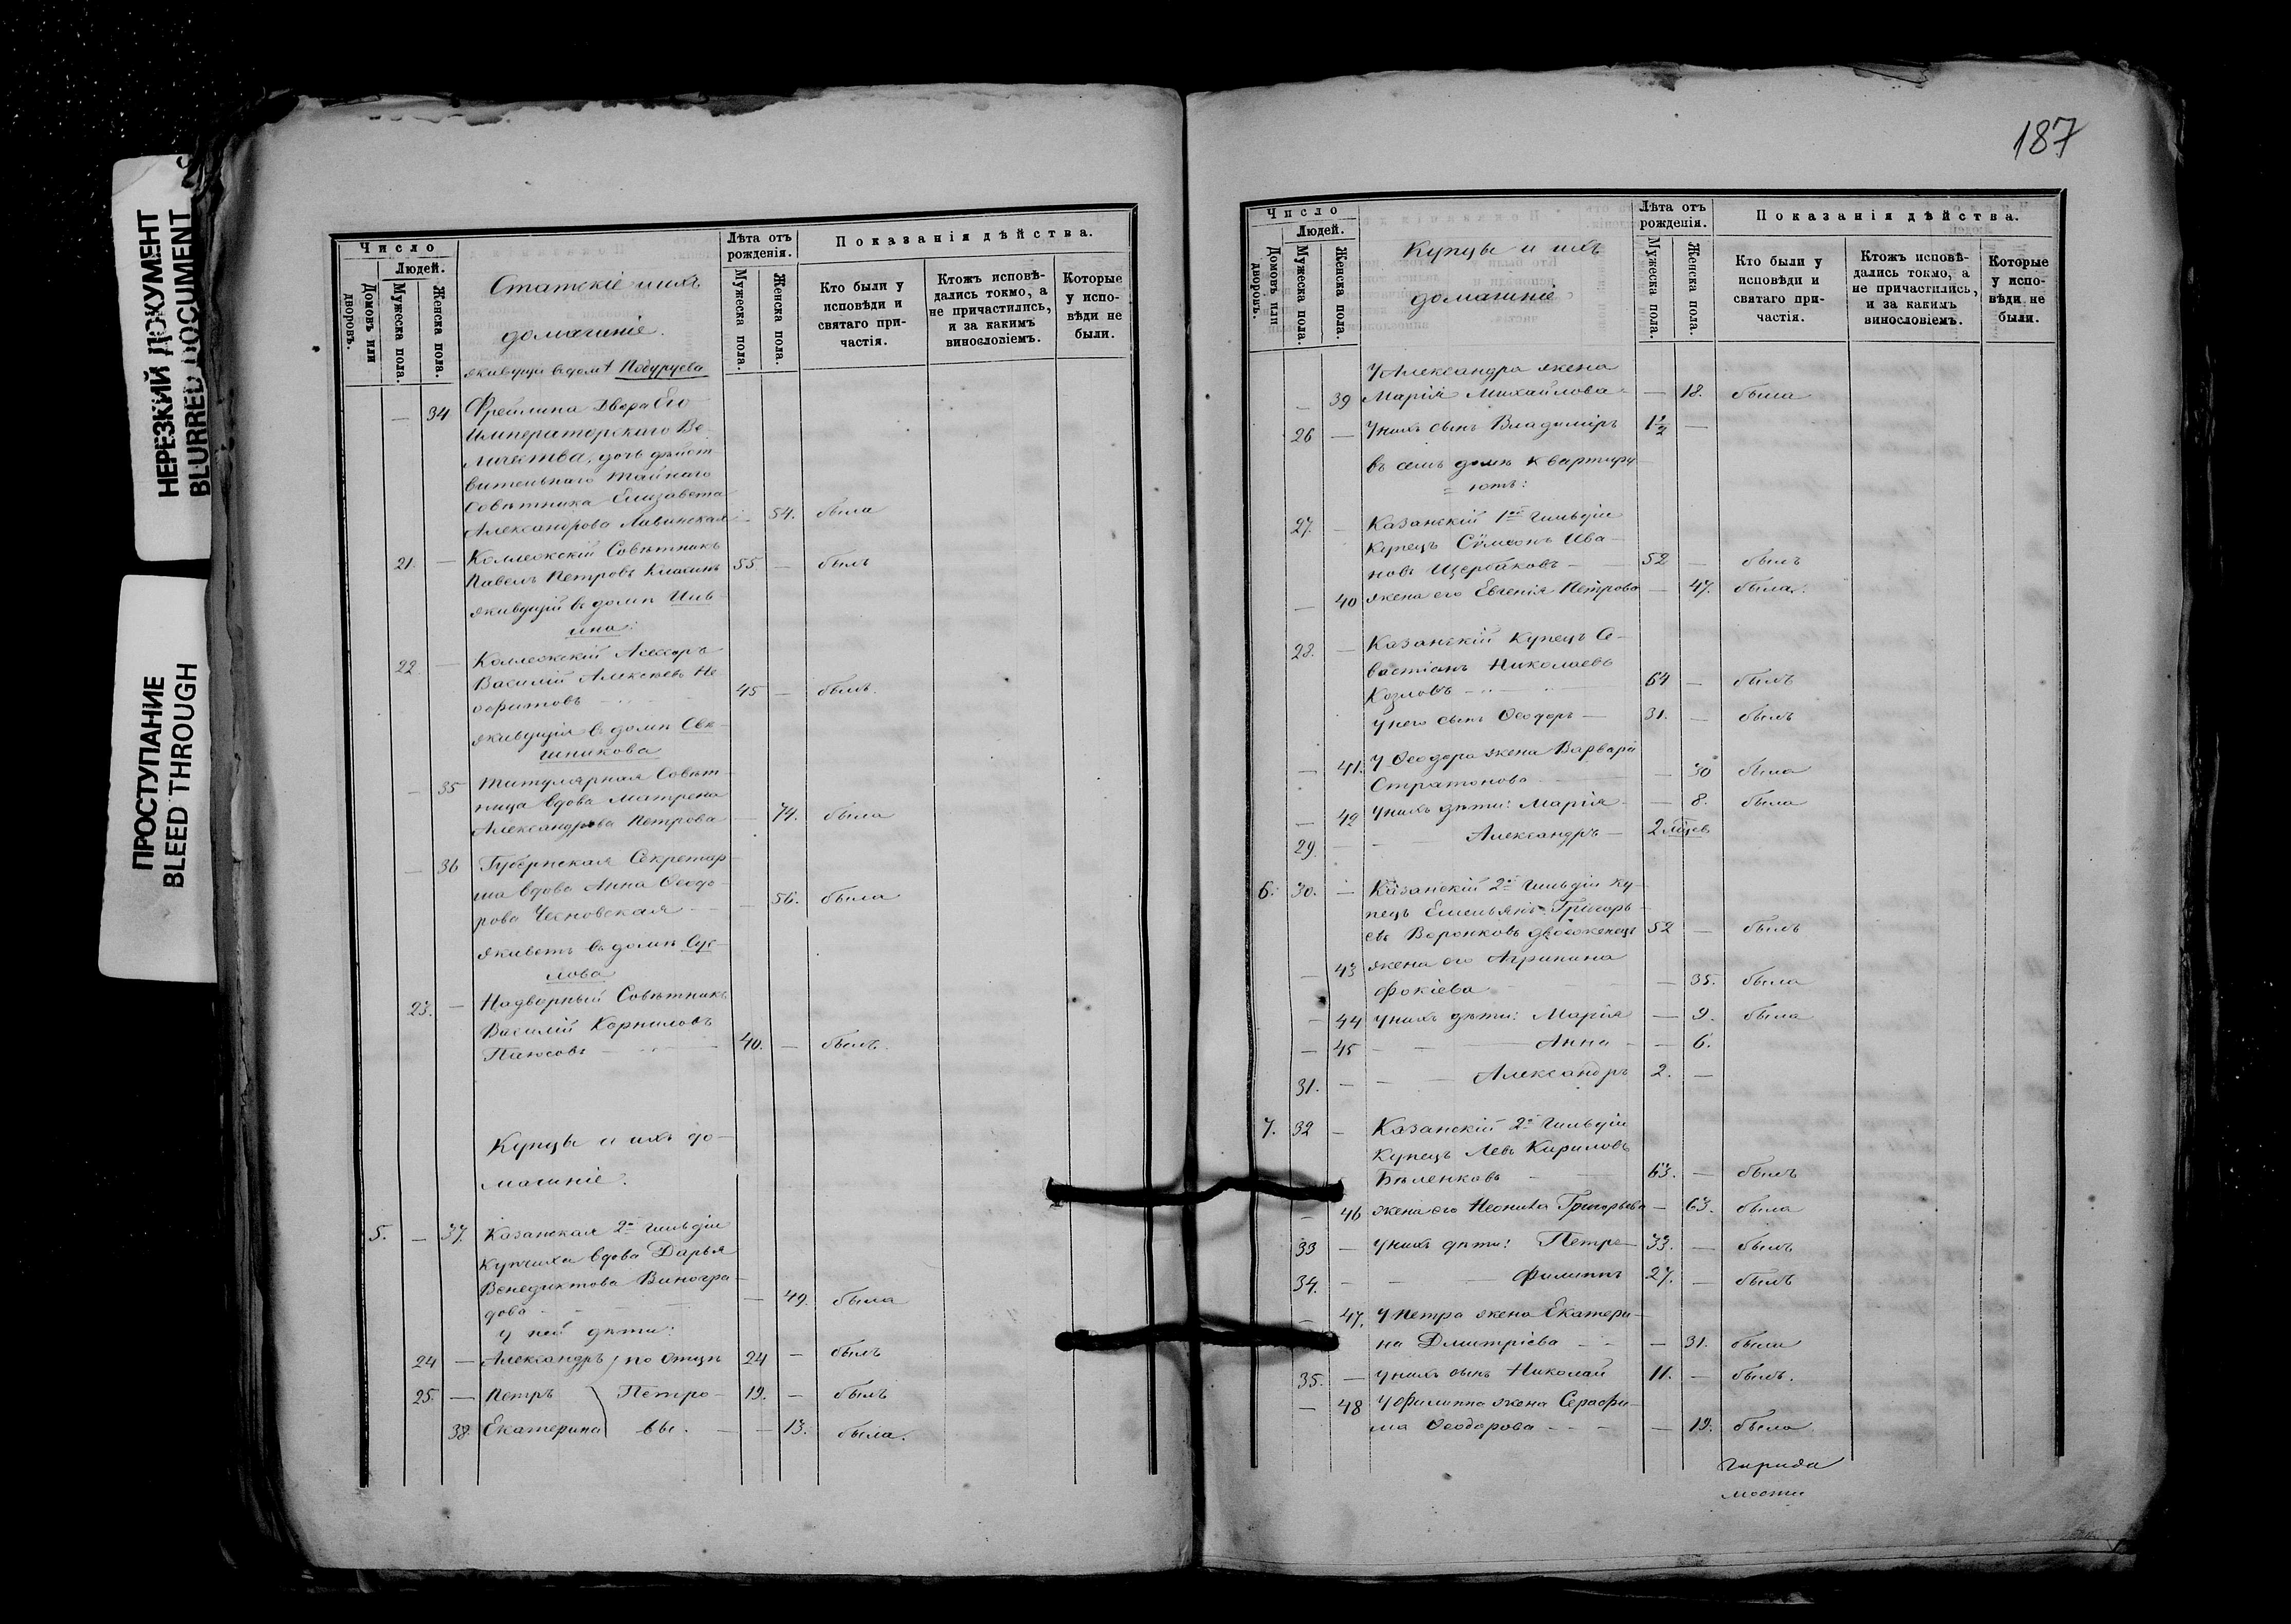 НЕРЕЗКИЙ ДОКУМЕНТ
BLURRED DOCUMENT
ПРОСТУПАНИЕ
BLEED THROUGH
Число
Людей.
Домовъ или дворовъ.
Мужеска пола.
Женска пола.
Статскіе и ихъ
домашніе.
Лѣта отъ рожденія.
Мужеска пола.
Женска пола.
Показанія дѣйства.
Кто были у исповѣди и святаго причастія.
Ктожъ исповѣдались токмо, а не причастились, и за какимъ винословіемъ.
Которые у исповѣди не были.
живущи въ домѣ
— 34 Фрейлина Двора Его
Императорскаго Ве
личества, дочь дѣйст
вительнаго Тайнаго
Совѣтника Елизавета
Александрова Лавинская — 54. была
21. — Коллежскій Совѣтникъ
Павелъ Петровъ 55 — былъ
живущій въ домѣ Иль
ина:
22 — Коллежскій Асессоръ
Василій Алексѣевъ Не
офитовъ 45 — былъ.
живущія въ домѣ Све
шникова
— 35 Титулярная Совѣт
ница вдова Матрена
Александрова Петрова — 74. была
— 36 Губернская Секретар
ша вдова Анна Ѳеодо
рова — 56. была
живетъ въ домѣ Сус
лова
23. — Надворный Совѣтникъ
Василій Корниловъ
40. — былъ.
Купцы и ихъ до
машніе.
5. — 37. Казанская 2й гильдіи
Купчиха вдова Дарья
Венедиктова Виногра
дова — 49. была
у ней дѣти:
24 — Александръ по отцѣ 24 — былъ
25. — Петръ Петро 19. — былъ
38. Екатерина вы. — — 13. была.
187
Число
Людей.
Домовъ или дворовъ.
Мужеска пола.
Женска пола.
Купцы и ихъ
домашніе
Лѣта отъ рожденія.
Мужеска пола.
Женска пола.
Показанія дѣйства.
Кто были у исповѣди и святаго причастія.
Ктожъ исповѣдались токмо, а не причастились, и за какимъ винословіемъ.
Которые у исповѣди не были.
У Александра жена
— 39 Марія Михайлова — 18. была
26 — У нихъ сынъ Владиміръ 1½ —
въ семъ домѣ квартиру
=ютъ:
27. — Казанскій 1ой гильдіи
Купецъ Сѵмеонъ Ива
новъ Щербаковъ — 52 — былъ
— 40 жена его Евгенія Петрова — 47. была.
28. — Казанскій Купецъ Се
вастіанъ Николаевъ
Козловъ 64 — былъ
У него сынъ Ѳеодоръ — 31. — былъ
— 41. У Ѳеодора жена Варвара
Стратонова — 30 была
— 42 У нихъ дѣти: Марія — 8. была
29. — — Александръ — 2 мѣсяц
6. 30. — Казанскій 2й гильдіи ку
пецъ Емельянъ Григорь
евъ Воронковъ двоеженецъ 52 — былъ
— 43 жена его Агрипина
Фокіева — 35. была
— 44 У нихъ дѣти: Марія — 9. была
— 45 — Анна — — 6.
31. — — Александръ 2. —
7. 32 — Казанскій 2й гильдіи
Купецъ Левъ Кириловъ
Бѣленковъ 63. — былъ
— 46 жена его Неонила Григорьева — 63. была
33 — У нихъ дѣти: Петръ — 33. — былъ
34. — — Филиппъ 27. — былъ
— 47. У Петра жена Екатери
на Дмитріева — 31. была
35. — У нихъ сынъ Николай 11. — былъ.
— 48 У Филиппа жена Серафи
ма Ѳеодорова — 19. была